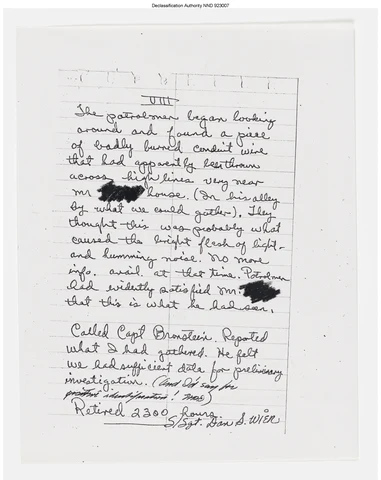 Declassification Authority NND 923007
VIII
The patrolmen began looking
around and found a piece
of badly burned conduit wire
that had apparently been thrown
across high lines very near
Mr. house. (In his alley
by what we could gather). They
thought this was probably what
caused the bright flash of light-
and humming noise. No more
info. avail at that time. Patrolmen
had evidently satisfied Mr.
that this is what he had seen.
Called Capt Bronstein. Reported
what I had gathered. He felt
we had sufficient data for preliminary
investigation. (And I'd say for
identification!
Retired 2300 hours.
S/Sgt. Dan S. WIER